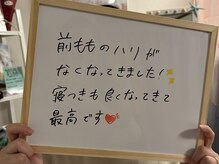 前もものハリが
なくなってきました!
寝つきも良くなってきて
最高です